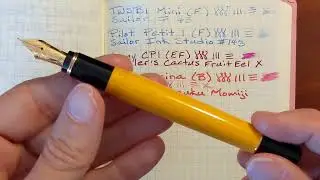 TWSBI Mini (F)
Sailor F 43
Pilot Petit 1 (F)
Sailor Ink Studio #143
CP1 (EF)
ler's Cactus Fruit Eel X
ina (B)
uku Momiji